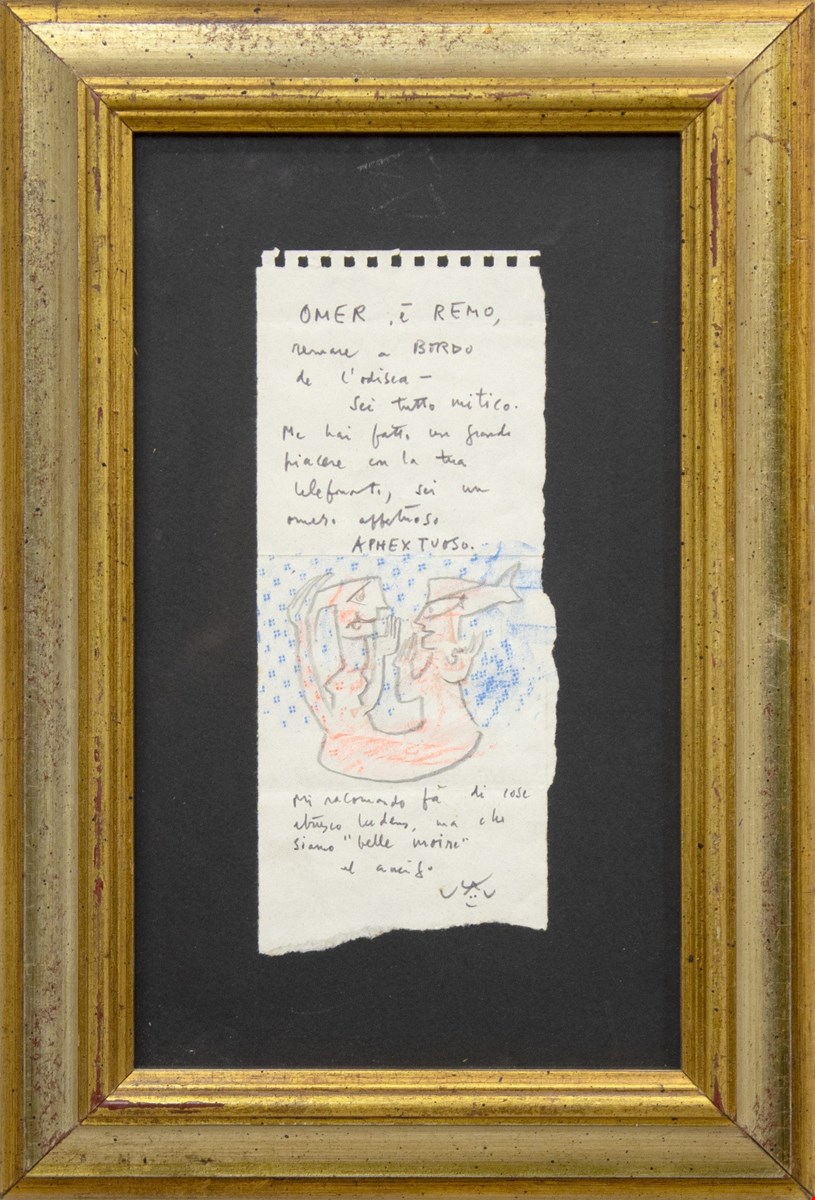 OMER, è REMO,
remare a BORDO
de l'odisea —
Sei tutto mitico.
Me hai fatto un grande
piacere con la tua
telefonata, sei un
omero affetuoso
APHEXTUOSO.
Mi racomando fà di cose
etrusco ludens, ma che
siano "belle moire"
el amigo